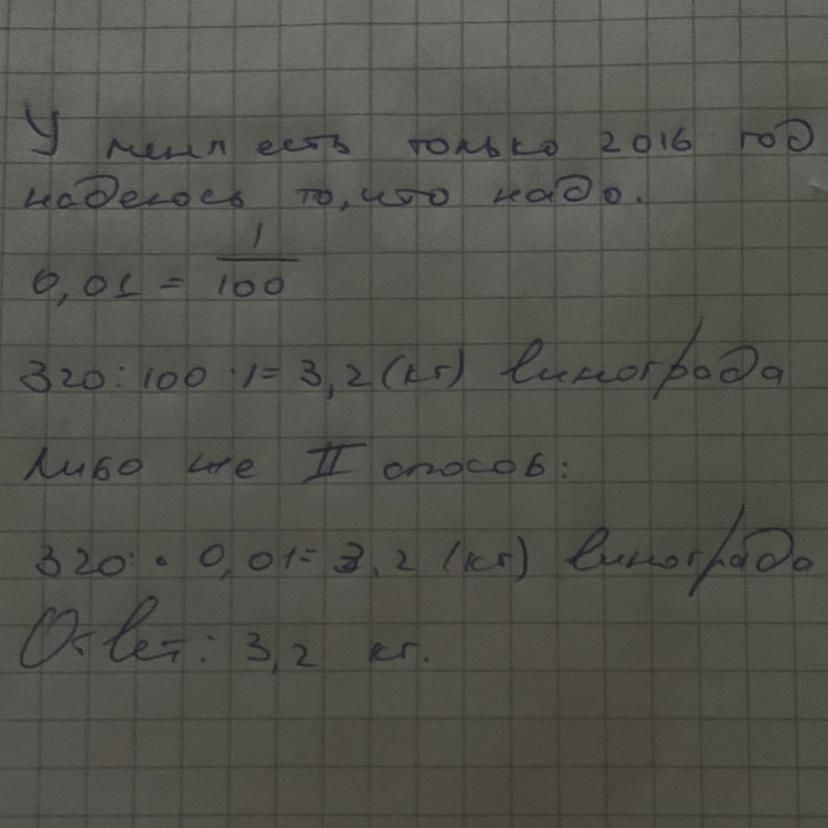 У меня есть только 2016 год
надеюсь то, что надо.
0,01 = 1/100
320 : 100 · 1 = 3,2 (кг) винограда
Либо же II способ:
320 · 0,01 = 3,2 (кг) винограда
Ответ: 3,2 кг.